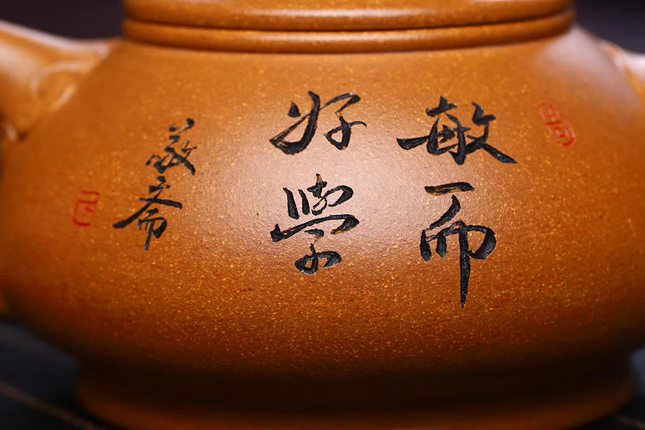 敏而
好學
敬斋